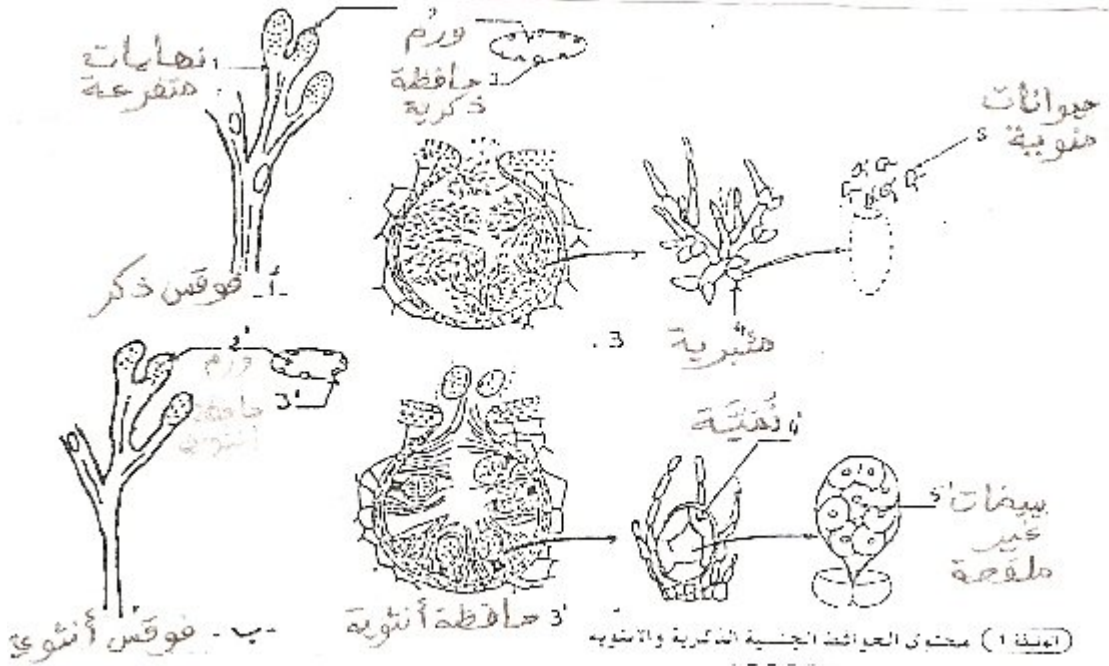 نهايات 1
متفرعة
2
ورم
3
حافظة
ذكرية
حيوانات
منوية 5
-أ- فوقس ذكر
3.
4
مئبرية
2'
ورم
3'
حافظة
3' حافظة أنثوية
4'
5' بييضات
غير
ملقحة
-ب- فوقس أنثوي
(الوثيقة 1) محتوى الحوافظ الجنسية الذكرية والانثوية